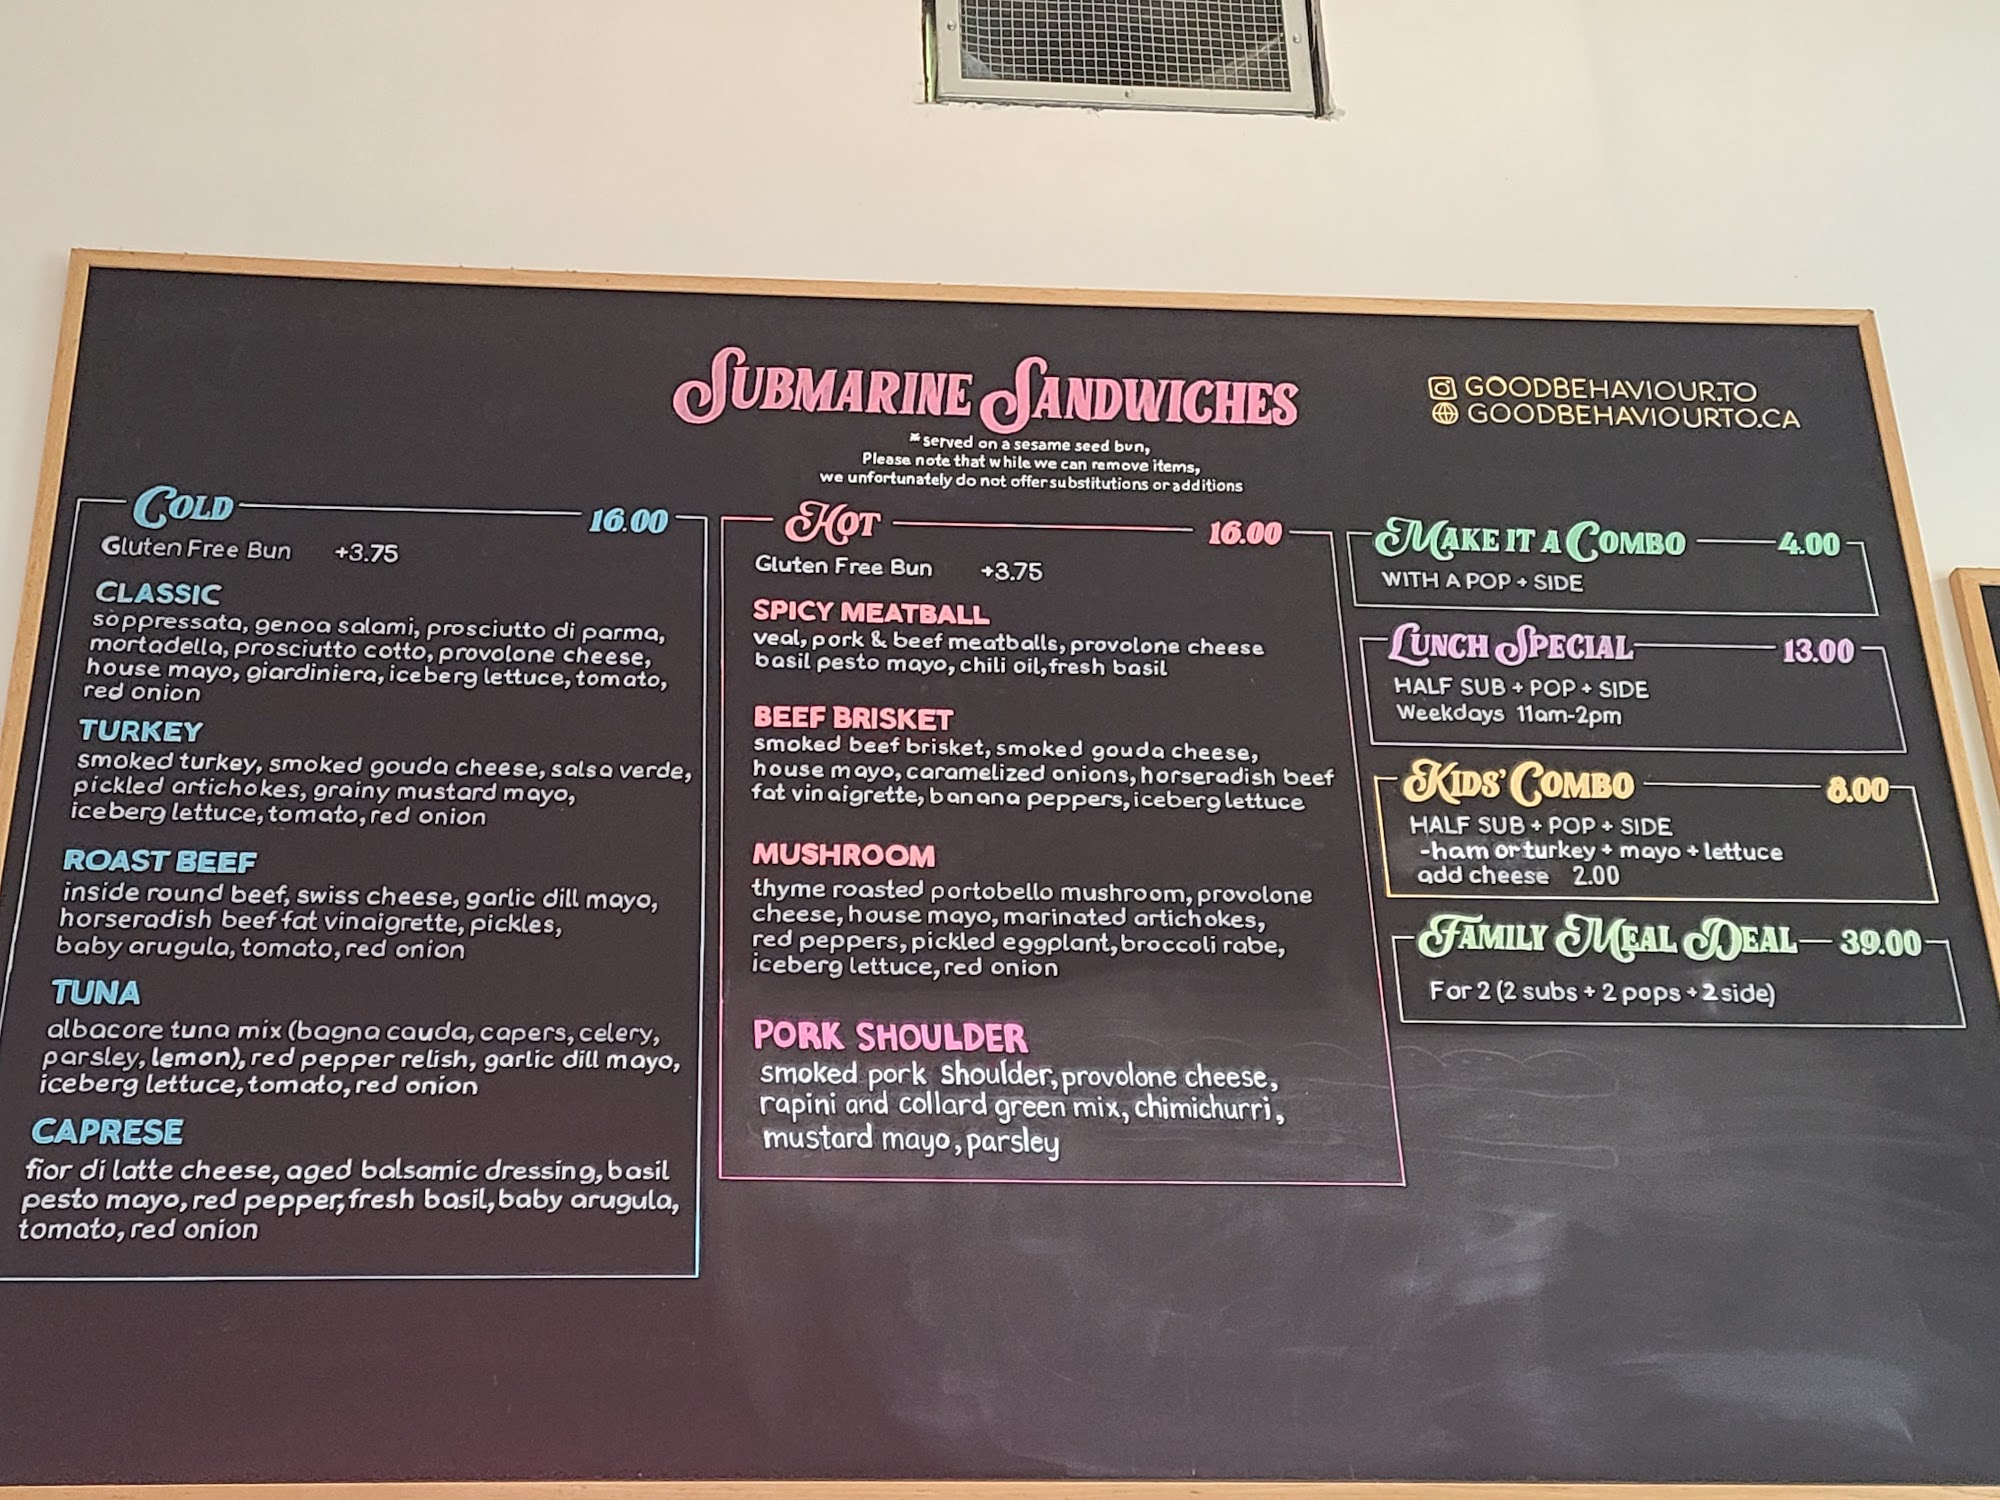 SUBMARINE SANDWICHES
*served on a sesame seed bun,
Please note that while we can remove items,
we unfortunately do not offer substitutions or additions
GOODBEHAVIOUR.TO
GOODBEHAVIOURTO.CA
COLD 16.00
Gluten Free Bun +3.75
CLASSIC
soppressata, genoa salami, prosciutto di parma,
mortadella, prosciutto cotto, provolone cheese,
house mayo, giardiniera, iceberg lettuce, tomato,
red onion
TURKEY
smoked turkey, smoked gouda cheese, salsa verde,
pickled artichokes, grainy mustard mayo,
iceberg lettuce, tomato, red onion
ROAST BEEF
inside round beef, swiss cheese, garlic dill mayo,
horseradish beef fat vinaigrette, pickles,
baby arugula, tomato, red onion
TUNA
albacore tuna mix (bagna cauda, capers, celery,
parsley, lemon), red pepper relish, garlic dill mayo,
iceberg lettuce, tomato, red onion
CAPRESE
fior di latte cheese, aged balsamic dressing, basil
pesto mayo, red pepper, fresh basil, baby arugula,
tomato, red onion
HOT 16.00
Gluten Free Bun +3.75
SPICY MEATBALL
veal, pork & beef meatballs, provolone cheese
basil pesto mayo, chili oil, fresh basil
BEEF BRISKET
smoked beef brisket, smoked gouda cheese,
house mayo, caramelized onions, horseradish beef
fat vinaigrette, banana peppers, iceberg lettuce
MUSHROOM
thyme roasted portobello mushroom, provolone
cheese, house mayo, marinated artichokes,
red peppers, pickled eggplant, broccoli rabe,
iceberg lettuce, red onion
PORK SHOULDER
smoked pork shoulder, provolone cheese,
rapini and collard green mix, chimichurri,
mustard mayo, parsley
MAKE IT A COMBO 4.00
WITH A POP + SIDE
LUNCH SPECIAL 13.00
HALF SUB + POP + SIDE
Weekdays 11am-2pm
KIDS' COMBO 8.00
HALF SUB + POP + SIDE
-ham or turkey + mayo + lettuce
add cheese 2.00
FAMILY MEAL DEAL 39.00
For 2 (2 subs + 2 pops + 2 side)